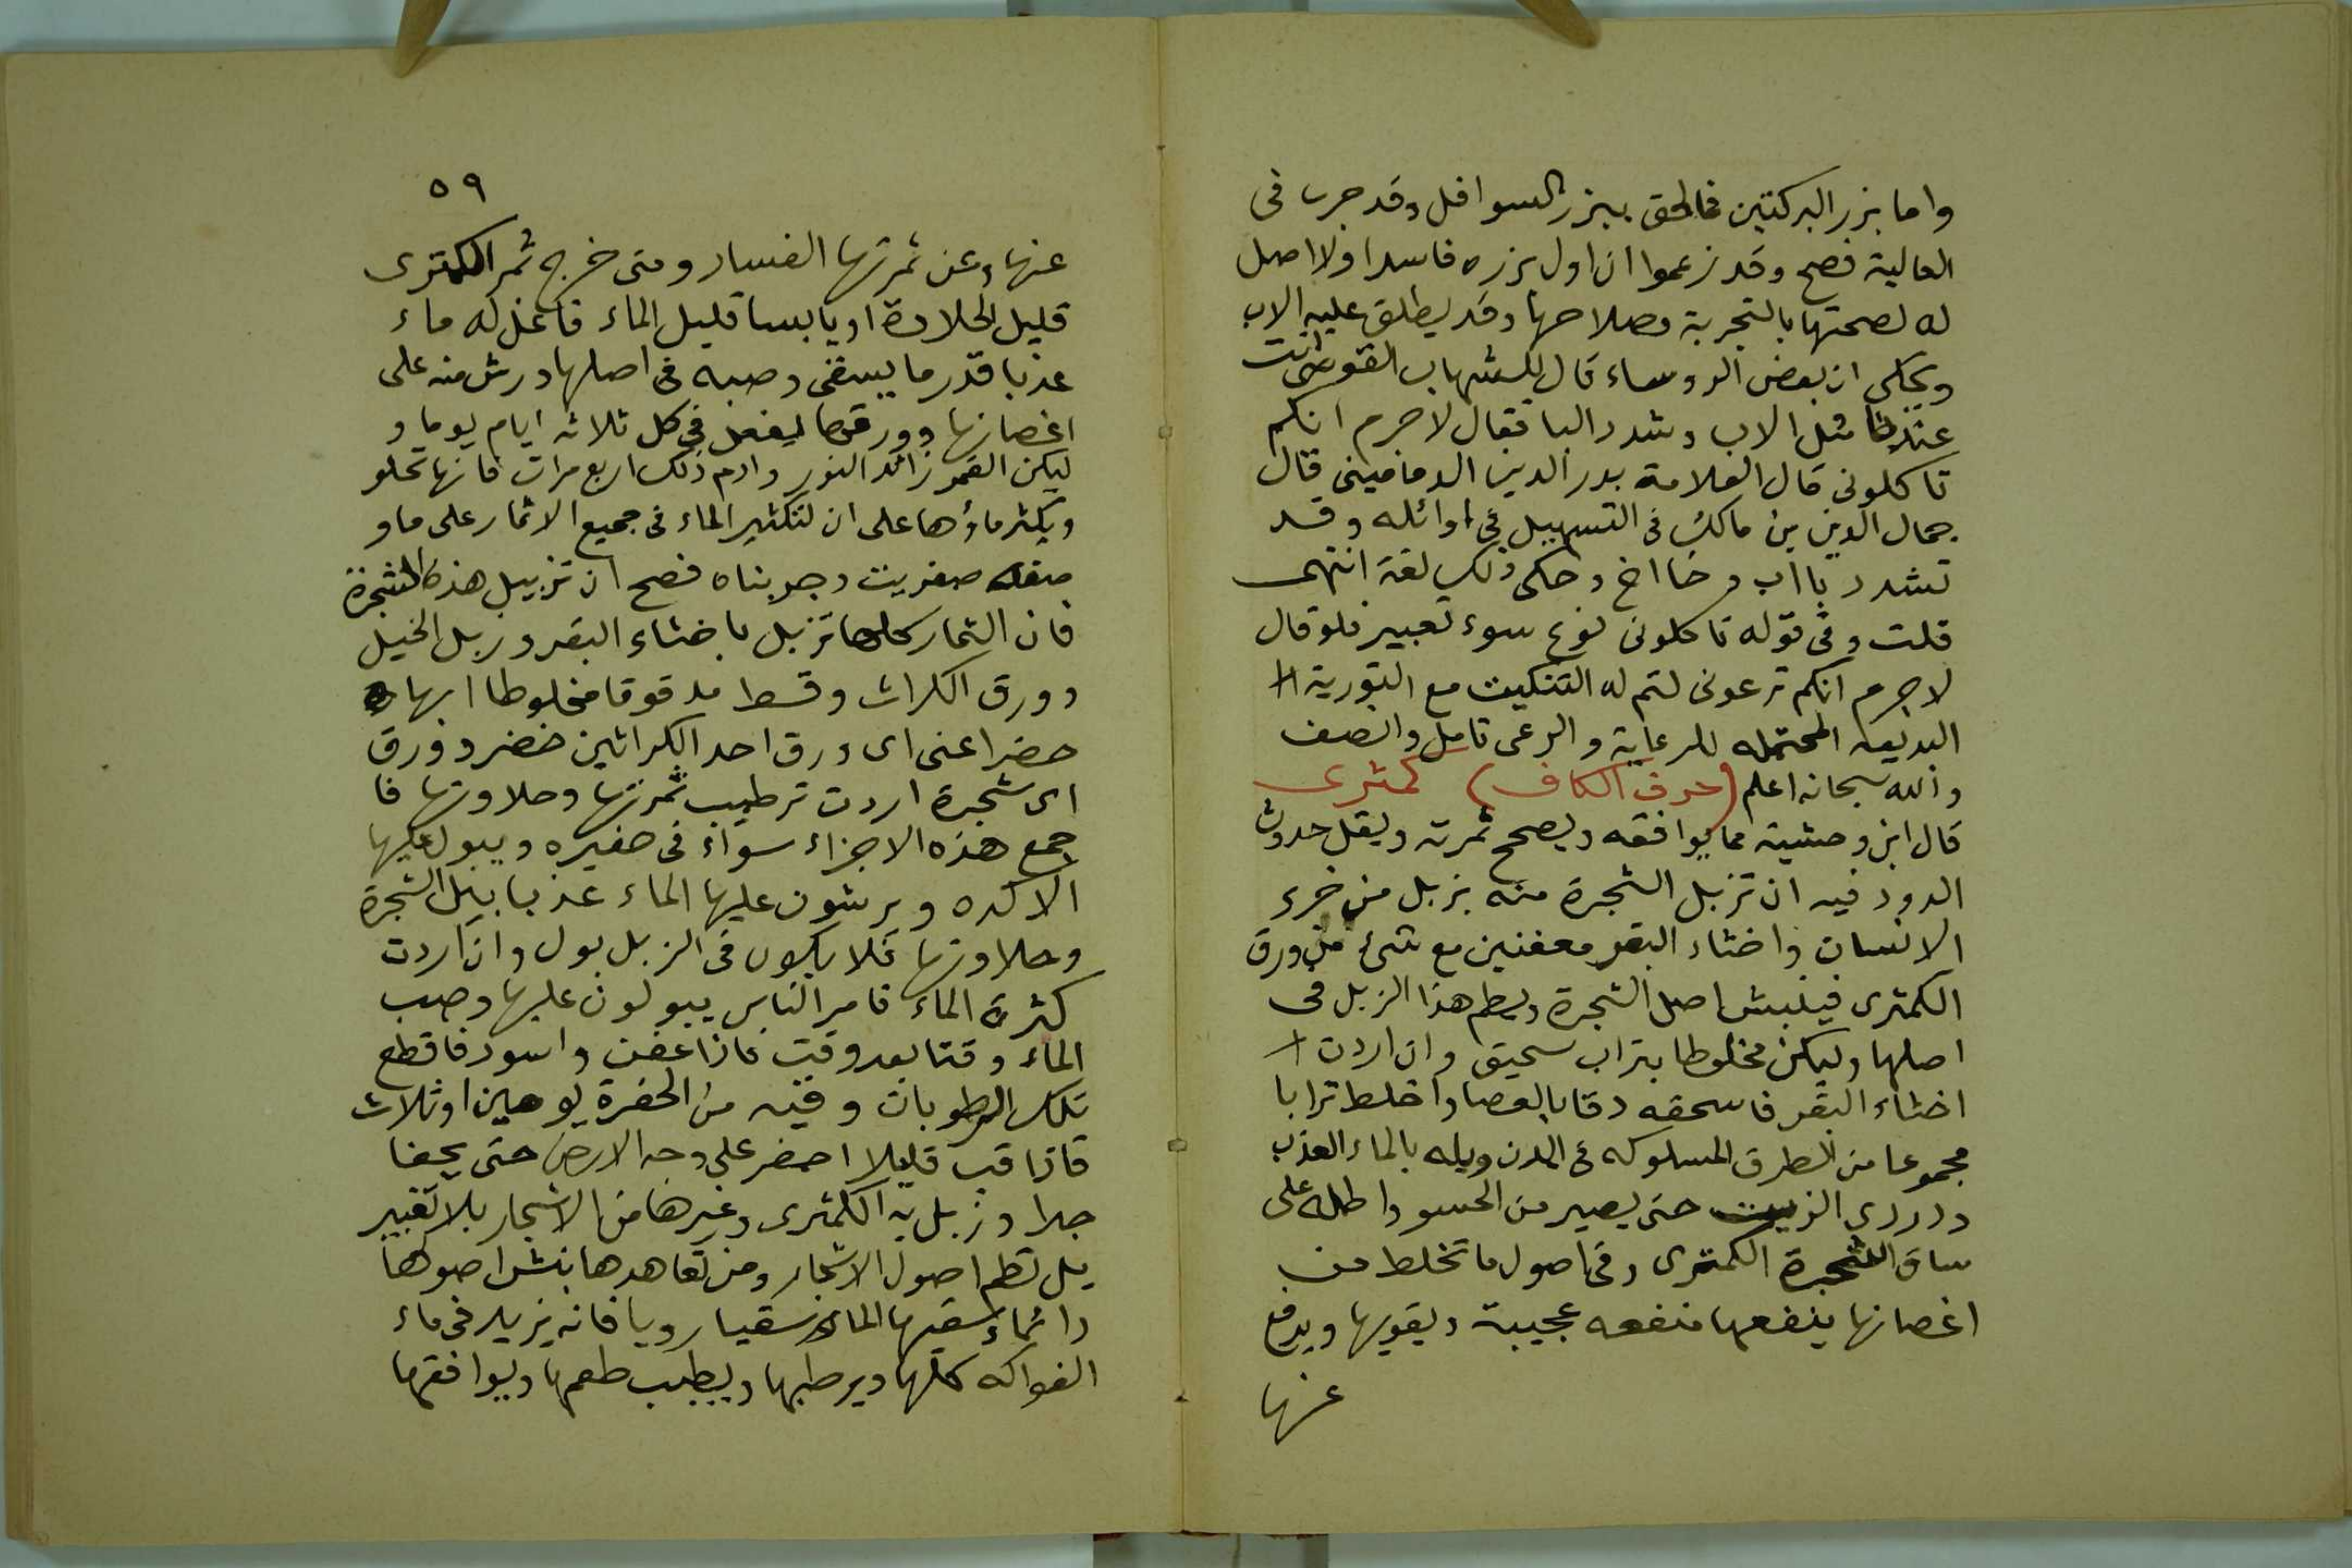 واما بزر البركتين فالحق ببزر السوافل وقد جرب فى
العالية فصح وقد زعموا ان اول بزره فاسدا ولا اصل
له لصحتها بالتجربة وصلاحها وقد يطلق عليه الاب
ويحكى ان بعض الروساء قال للشهاب القوصى انت
عندنا مثل الاب وشدد البا فقال لا جرم انكم
تاكلونى قال العلامة بدر الدين الدمامينى قال
جمال الدين بن مالك فى التسهيل فى اوائله وقد
تشدد با اب وخا اخ وحكى ذلك لغة انتهى
قلت وفى قوله تاكلونى نوع سوء تعبير فلو قال
لا جرم انكم ترعونى لتم له التنكيت مع التورية ا
البديعه المحتمله للرعاية والرعى تامل وانصف
والله سبحانه اعلم (حرف الكاف) كمثرى
قال ابن وحشية مما يوافقه ويصحح ثمرته ويقل حدوث
الدود فيه ان تزبل الشجرة منه بزبل من خرء
الانسان واخثاء البقر معفنين مع شىء من ورق
الكمثرى فينبش اصل الشجرة ويطم هذا الزبل فى
اصلها وليكن مخلوطا بتراب سحيق وان اردت ا
اخثاء البقر فاسحقه دقا بالعصا واخلط ترابا
مجموعا من الطرق المسلوكه فى المدن وبله بالماء العذب
ودردى الزيت حتى يصير من الحسو واطله على
ساق الشجرة الكمثرى وفى اصول ما تخلط من
اغصانها ينفعها منفعه عجيبة ويقويها ويدفع
عنها
٥٩
عنها وعن ثمرتها الفساد ومتى خرج ثمر الكمثرى
قليل الحلاوة او يابسا قليل الماء فاغل له ماء
عذبا قدر ما يسقى وصبه فى اصلها ورش منه على
اغصانها وورقها يفعل فى كل ثلاثه ايام يوما و
ليكن القمر زائد النور وادم ذلك اربع مرات فانها تحلو
ويكثر ماؤها على ان لتكثير الماء فى جميع الاثمار على ما و
صفه صغريت وجربناه فصح ان تزبيل هذه الشجرة
فان الثمار كلها تزبل باخثاء البقر وزبل الخيل
وورق الكراث وقسط مدقوقا مخلوطا ايها
حضر اعنى اى ورق احد الكراثين خضر وورق
اى شجرة اردت ترطيب ثمرتها وحلاوتها فا
جمع هذه الاجزاء سواء فى حفيره ويبول عليها
الاكره ويرشون عليها الماء عذبا بيل الشجرة
وحلاوتها فلا يكون فى الزبل بول وان اردت
كثرة الماء فامر الناس يبولون عليها وصب
الماء وقتا بعد وقت فاذا عفن واسود فاقطع
تلك الرطوبات وقيه من الحفرة يومين او ثلاث
فاذا قب قليلا احضر على وجه الارض حتى يجفا
جدا وزبل به الكمثرى وغيرها من الاشجار بلا تغبير
بل تطم اصول الاشجار ومن تعاهدها بنش اصولها
دائما وسقيها الماء سقيا رويا فانه يزيد فى ماء
الفواكه كلها ويرطبها ويطيب طعمها ويوافقها